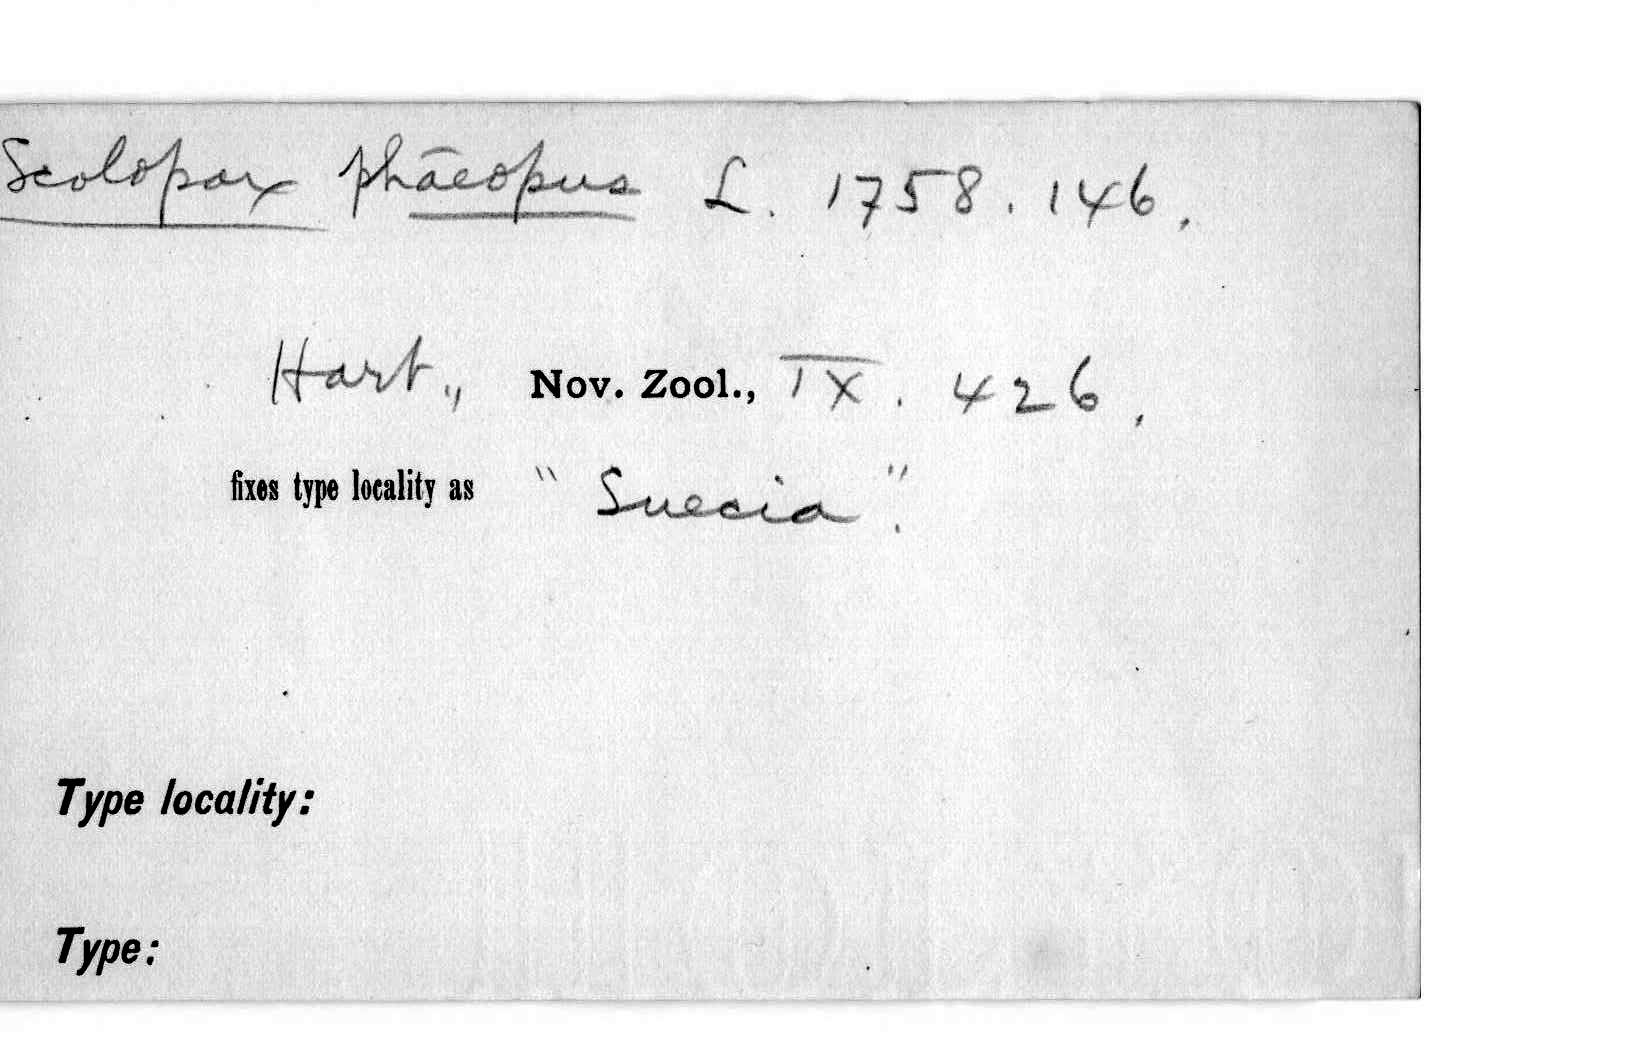 Scolopax phāeopus L. 1758. 146,
Hart., Nov. Zool., IX. 426,
fixes type locality as "Suecia".
Type locality:
Type: